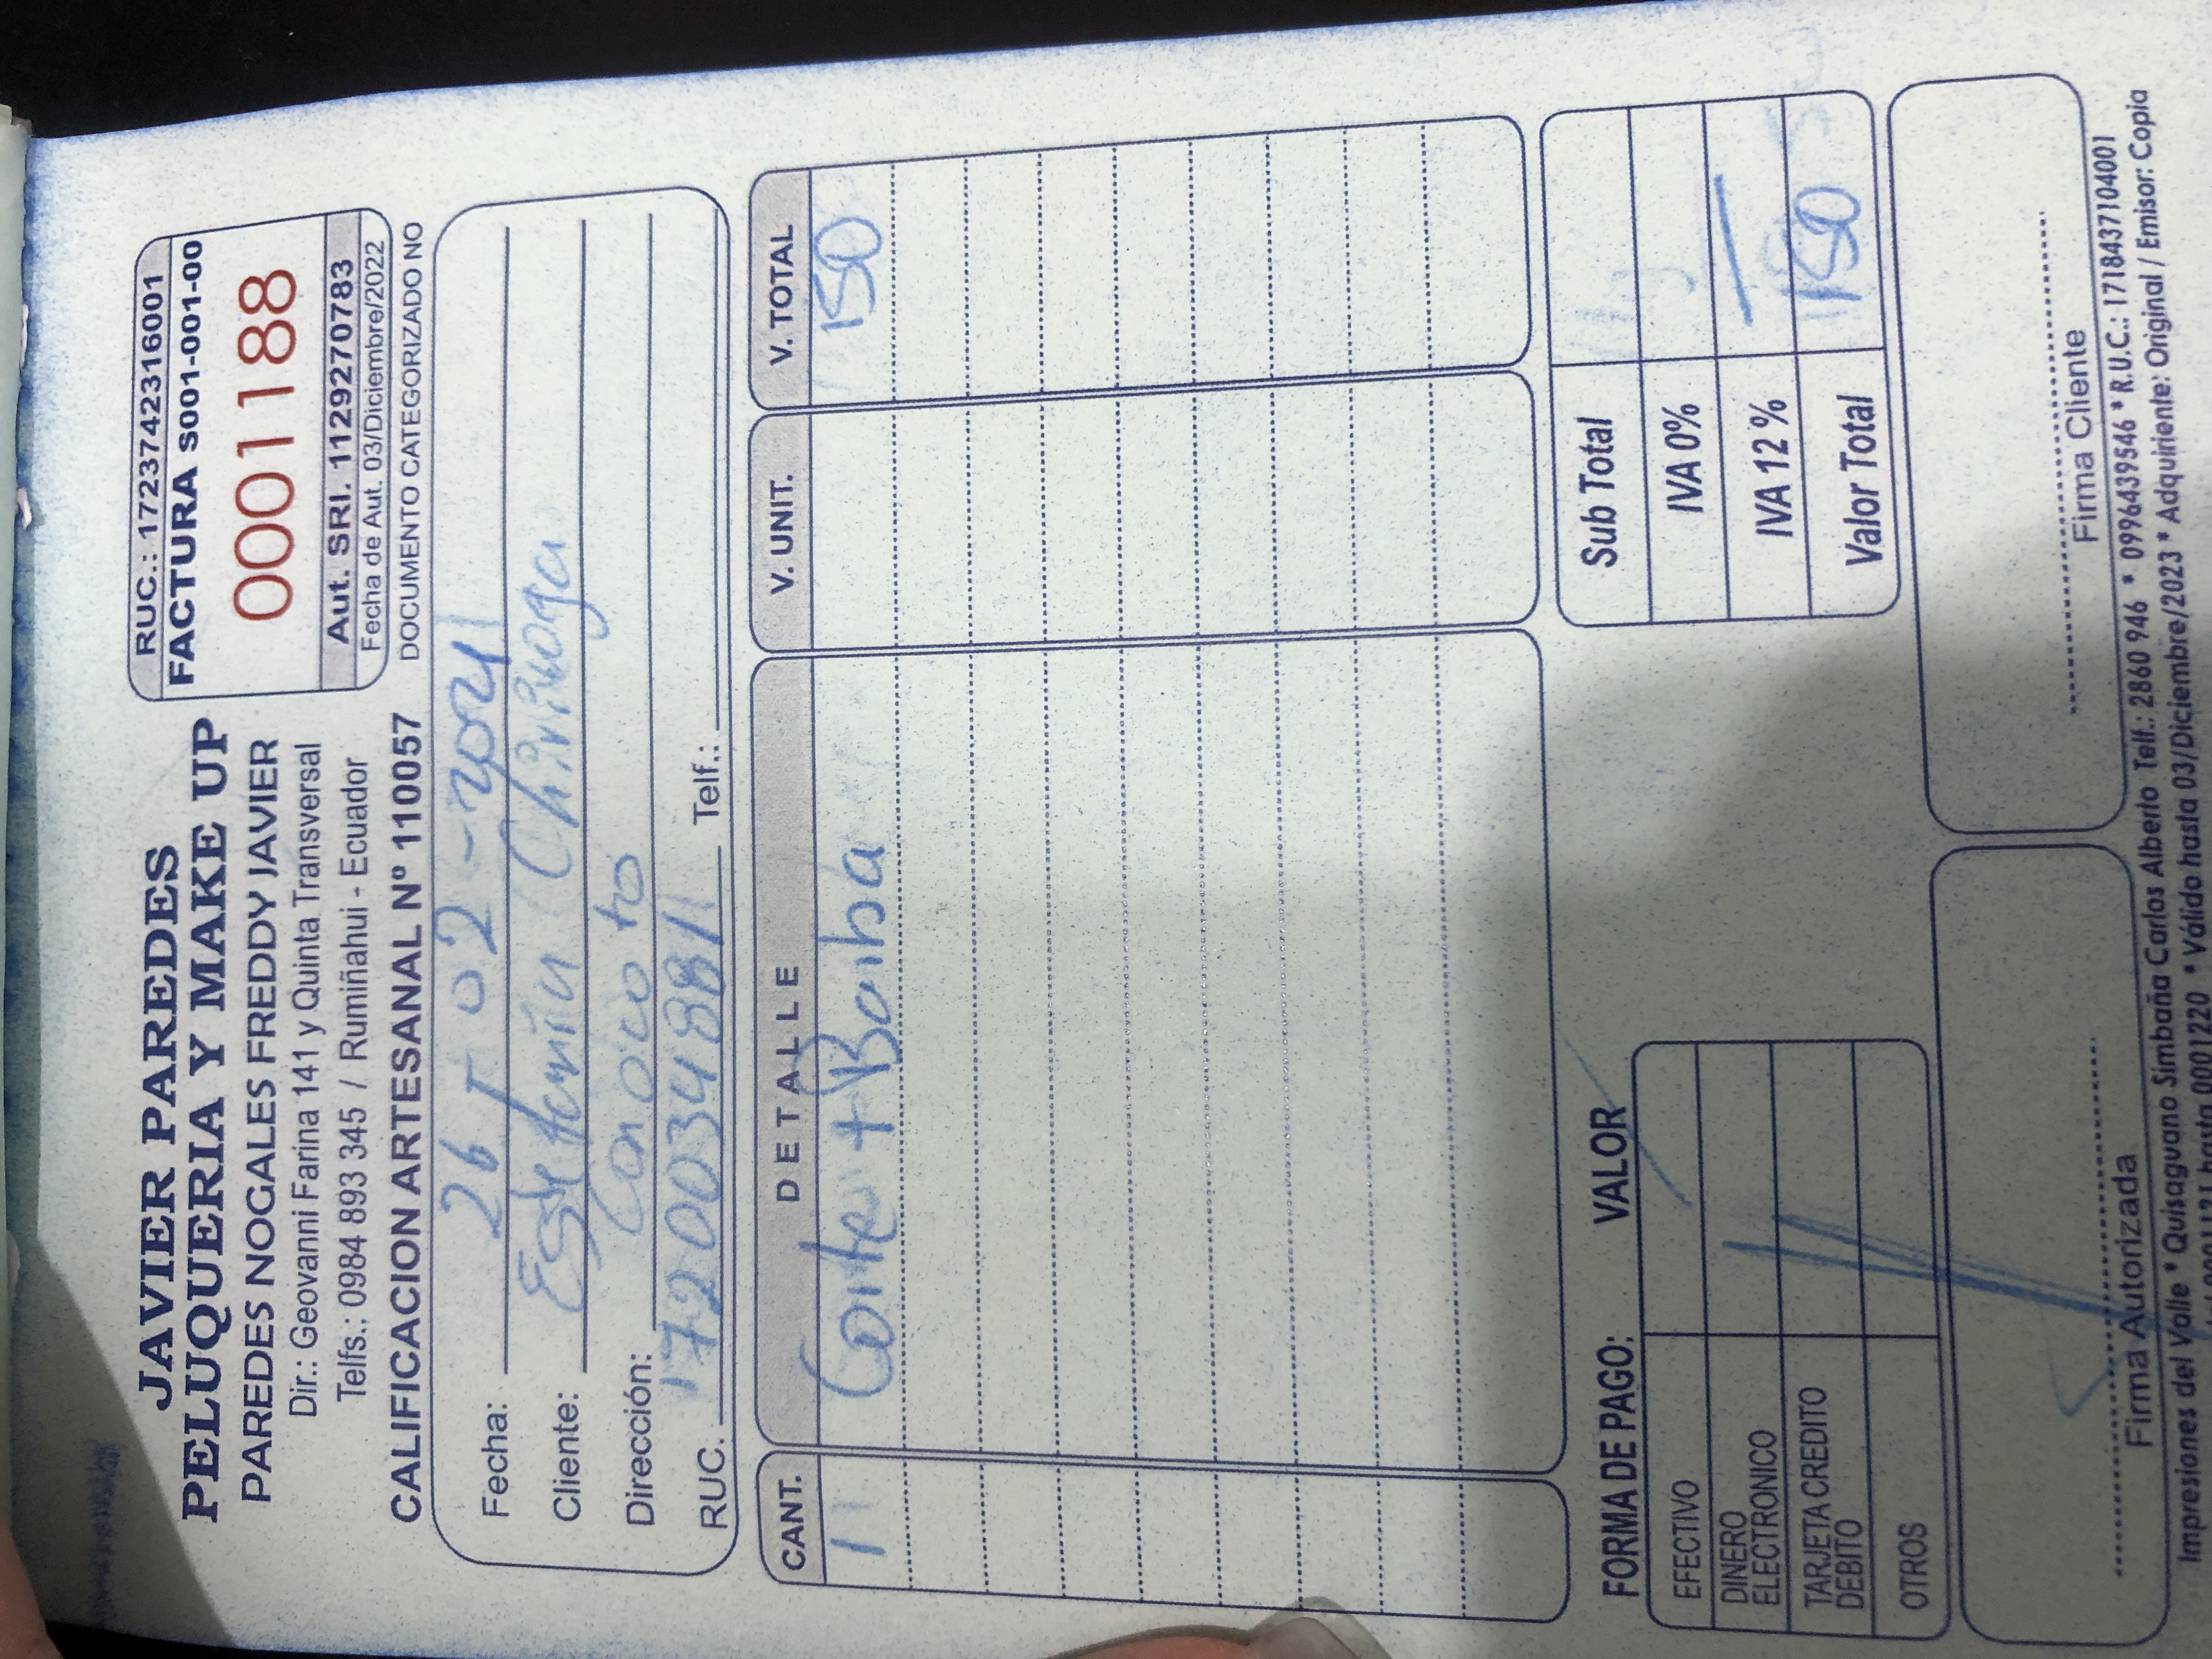 JAVIER PAREDES
PELUQUERIA Y MAKE UP
PAREDES NOGALES FREDDY JAVIER
Dir.: Geovanni Farina 141 y Quinta Transversal
Telfs.: 0984 893 345 / Rumiñahui - Ecuador
CALIFICACION ARTESANAL Nº 110057
RUC.: 1723742316001
FACTURA S001-001-00
0001188
Aut. SRI. 1129270783
Fecha de Aut. 03/Diciembre/2022
DOCUMENTO CATEGORIZADO NO
Fecha: 26-02-2021
Cliente: Estefanía Chiriboga
Dirección: Conocoto
RUC. 1720034881 Telf.:
CANT. DETALLE V. UNIT. V. TOTAL
1 Corte + Barba 150
FORMA DE PAGO: VALOR
EFECTIVO
DINERO
ELECTRONICO
TARJETA CREDITO
DEBITO
OTROS
Sub Total
IVA 0%
IVA 12 %
Valor Total 150
Firma Autorizada
Firma Cliente
Impresiones del Valle * Quisaguano Simbaña Carlos Alberto Telf.: 2860 946 * 0996439546 * R.U.C.: 1718437104001
0001121 hasta 0001220 * Válido hasta 03/Diciembre/2023 * Adquiriente: Original / Emisor: Copia